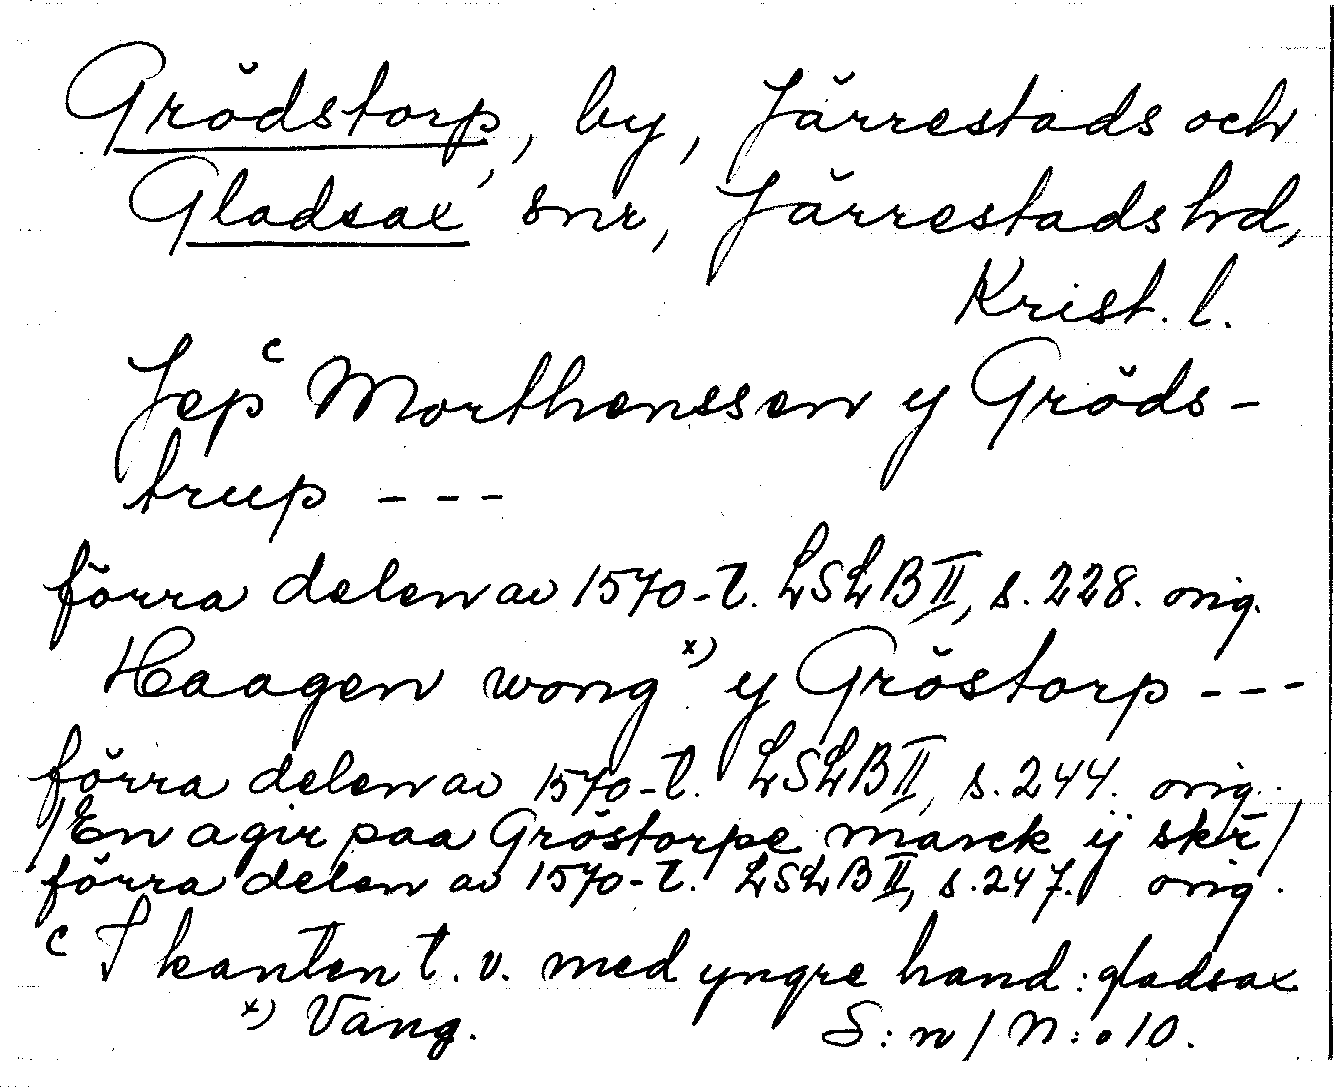 Grödstorp, by, Järrestads och
Gladsax snr, Järrestads hrd,
Krist. l.
Jep c Morthenssen y Gröds-
trup ---
förra delen av 1570-t. LSLB II, s. 228. orig.
Haagen wong x) y Gröstorp ---
förra delen av 1570-t. LSLB II, s. 244. orig.
/En agir paa Gröstorpe marck ij skr̄/
förra delen av 1570-t. LSLB II, s. 247. orig.
c I kanten t. v. med yngre hand: gladsax
x) Vång. S:n / N:o 10.